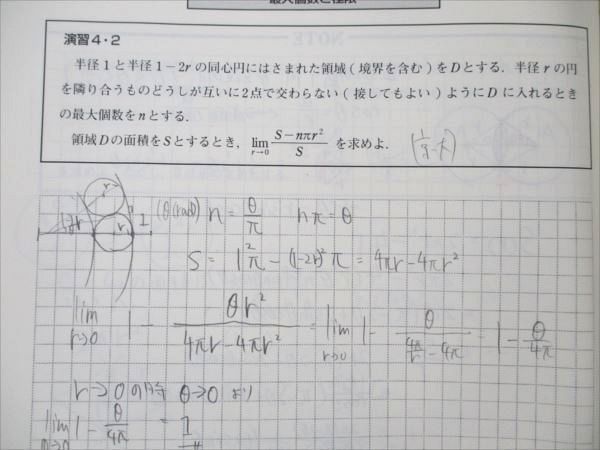 最大個数と極限
演習4・2
半径1と半径1−2rの同心円にはさまれた領域(境界を含む)をDとする。半径rの円
を隣り合うものどうしが互いに2点で交わらない(接してもよい)ようにDに入れるとき
の最大個数をnとする。
領域Dの面積をSとするとき, lim r→0 (S−nπr²)/S を求めよ.
r
r
1
(θ(rad)) n = θ/π nπ = θ
S = 1²π − (1-2r)²π = 4πr − 4πr²
lim r→0 1 − θr²/(4πr−4πr²) = lim r→0 1 − θ/(4π/r − 4π) = 1 − θ/4π
r→0 の時 θ→0 より
lim 1 − θ/4π = 1